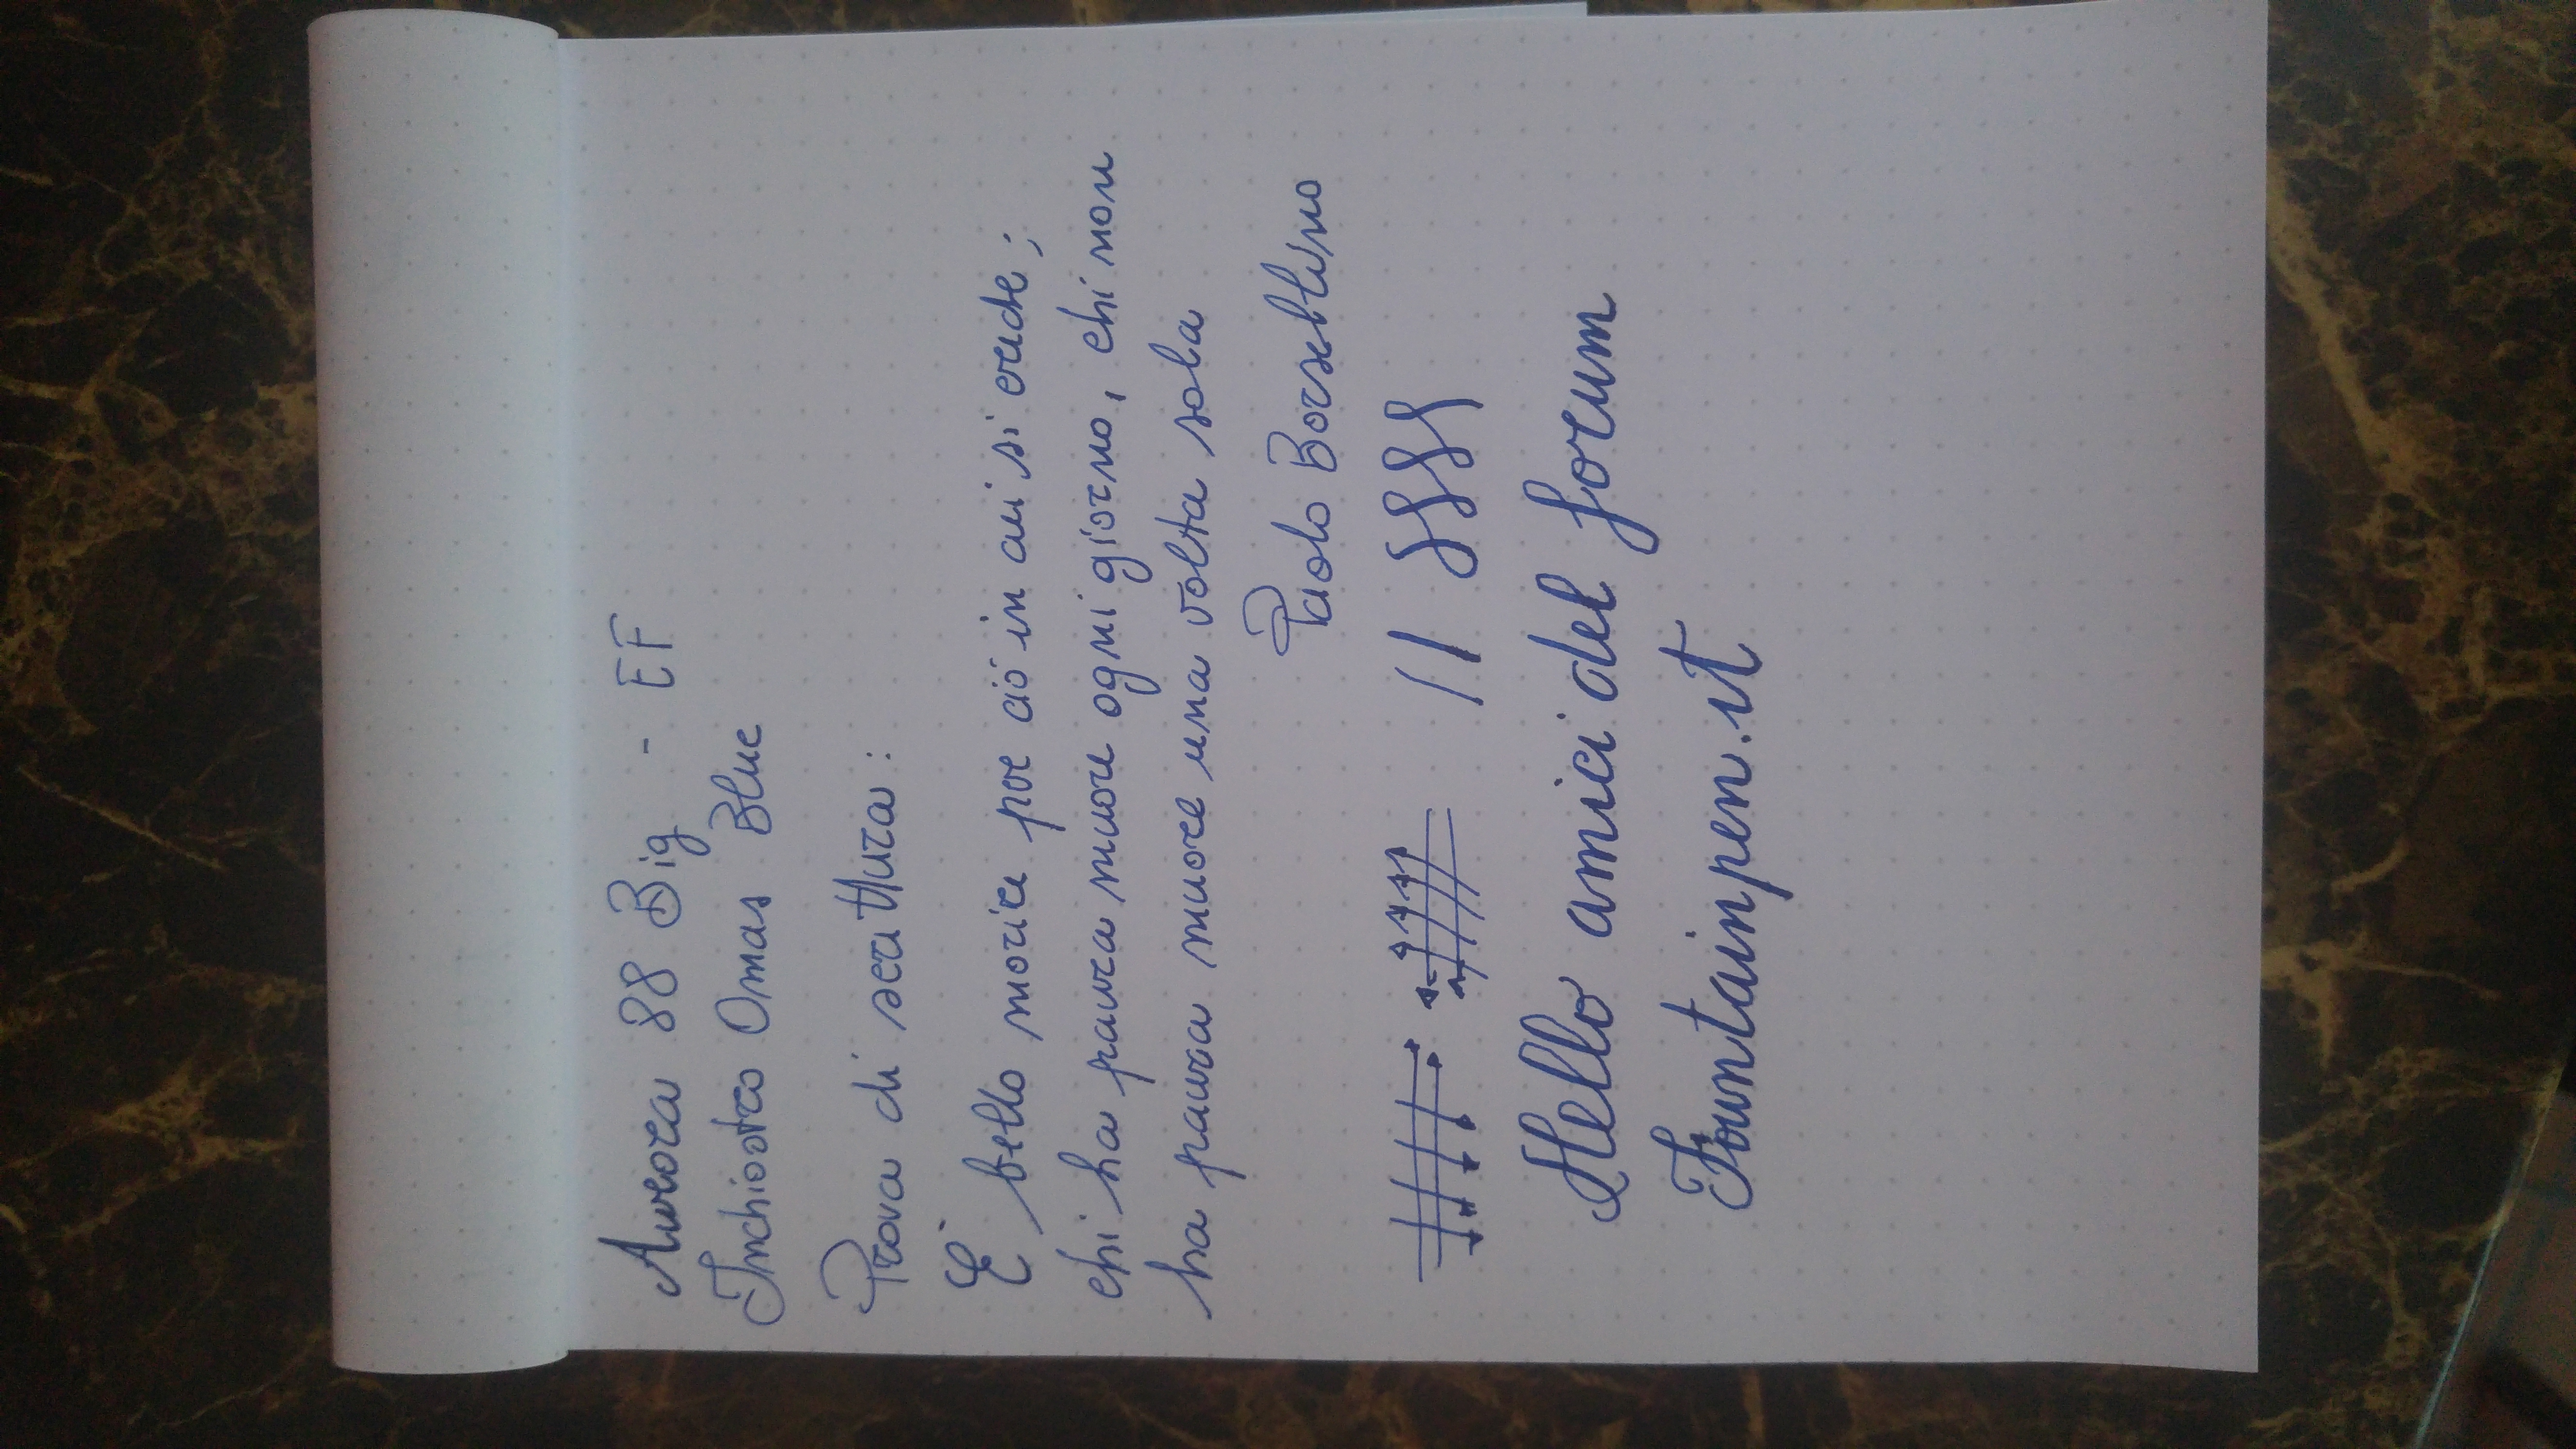 Aurora 88 Big - EF
Inchiostro Omas Blue
Prova di scrittura:
E' bello morire per ciò in cui si crede;
chi ha paura muore ogni giorno, chi non
ha paura muore una volta sola
Paolo Borsellino
Hello amici del forum
Fountainpen.it